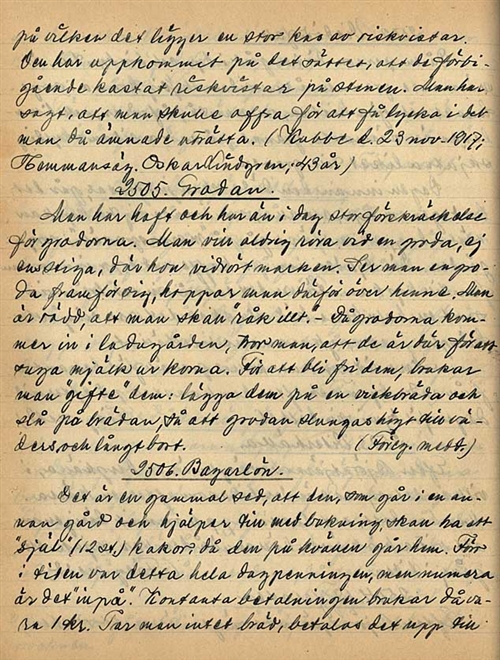 på vilken det ligger en stor kas av riskvistar.
Den har uppkommit på det sättet, att de förbi-
gående kastat riskvistar på stenen. Man har
sagt, att man skulle offra för att få lycka i det
man då ämnade uträtta. (Kabbe d. 23 nov. 1917;
Hemmansäg. Oskar Lindgren, 43 år)
2505. Grodan.
Man har haft och har än i dag stor förskräckelse
för grodorna. Man vill aldrig röra vid en groda, ej
ens stiga, där hon vidrört marken. Ser man en gro-
da framför sig, hoppar man därför över henne. Man
är rädd, att man skall råk illt. – Då grodorna kom-
mer in i ladugården, tror man, att de är där för att
suga mjälk ur korna. För att bli fri dem, brukar
man "gifte" dem: lägga dem på en vickbräda och
slå på brädan, så att grodan slungas högt till vä-
ders och långt bort. (Föreg. medd.)
2506. Bagarlön.
Det är en gammal sed, att den, som går i en an-
nan gård och hjälper till med bakning, skall ha ett
"tjäl" (12 st.) kakor, då den på kvällen går hem. Förr
i tiden var detta hela dagpenningen, men numera
är det "inpå". Kontanta betalningen brukar då va-
ra 1 kr. Tar man intet bröd, betalas det upp till